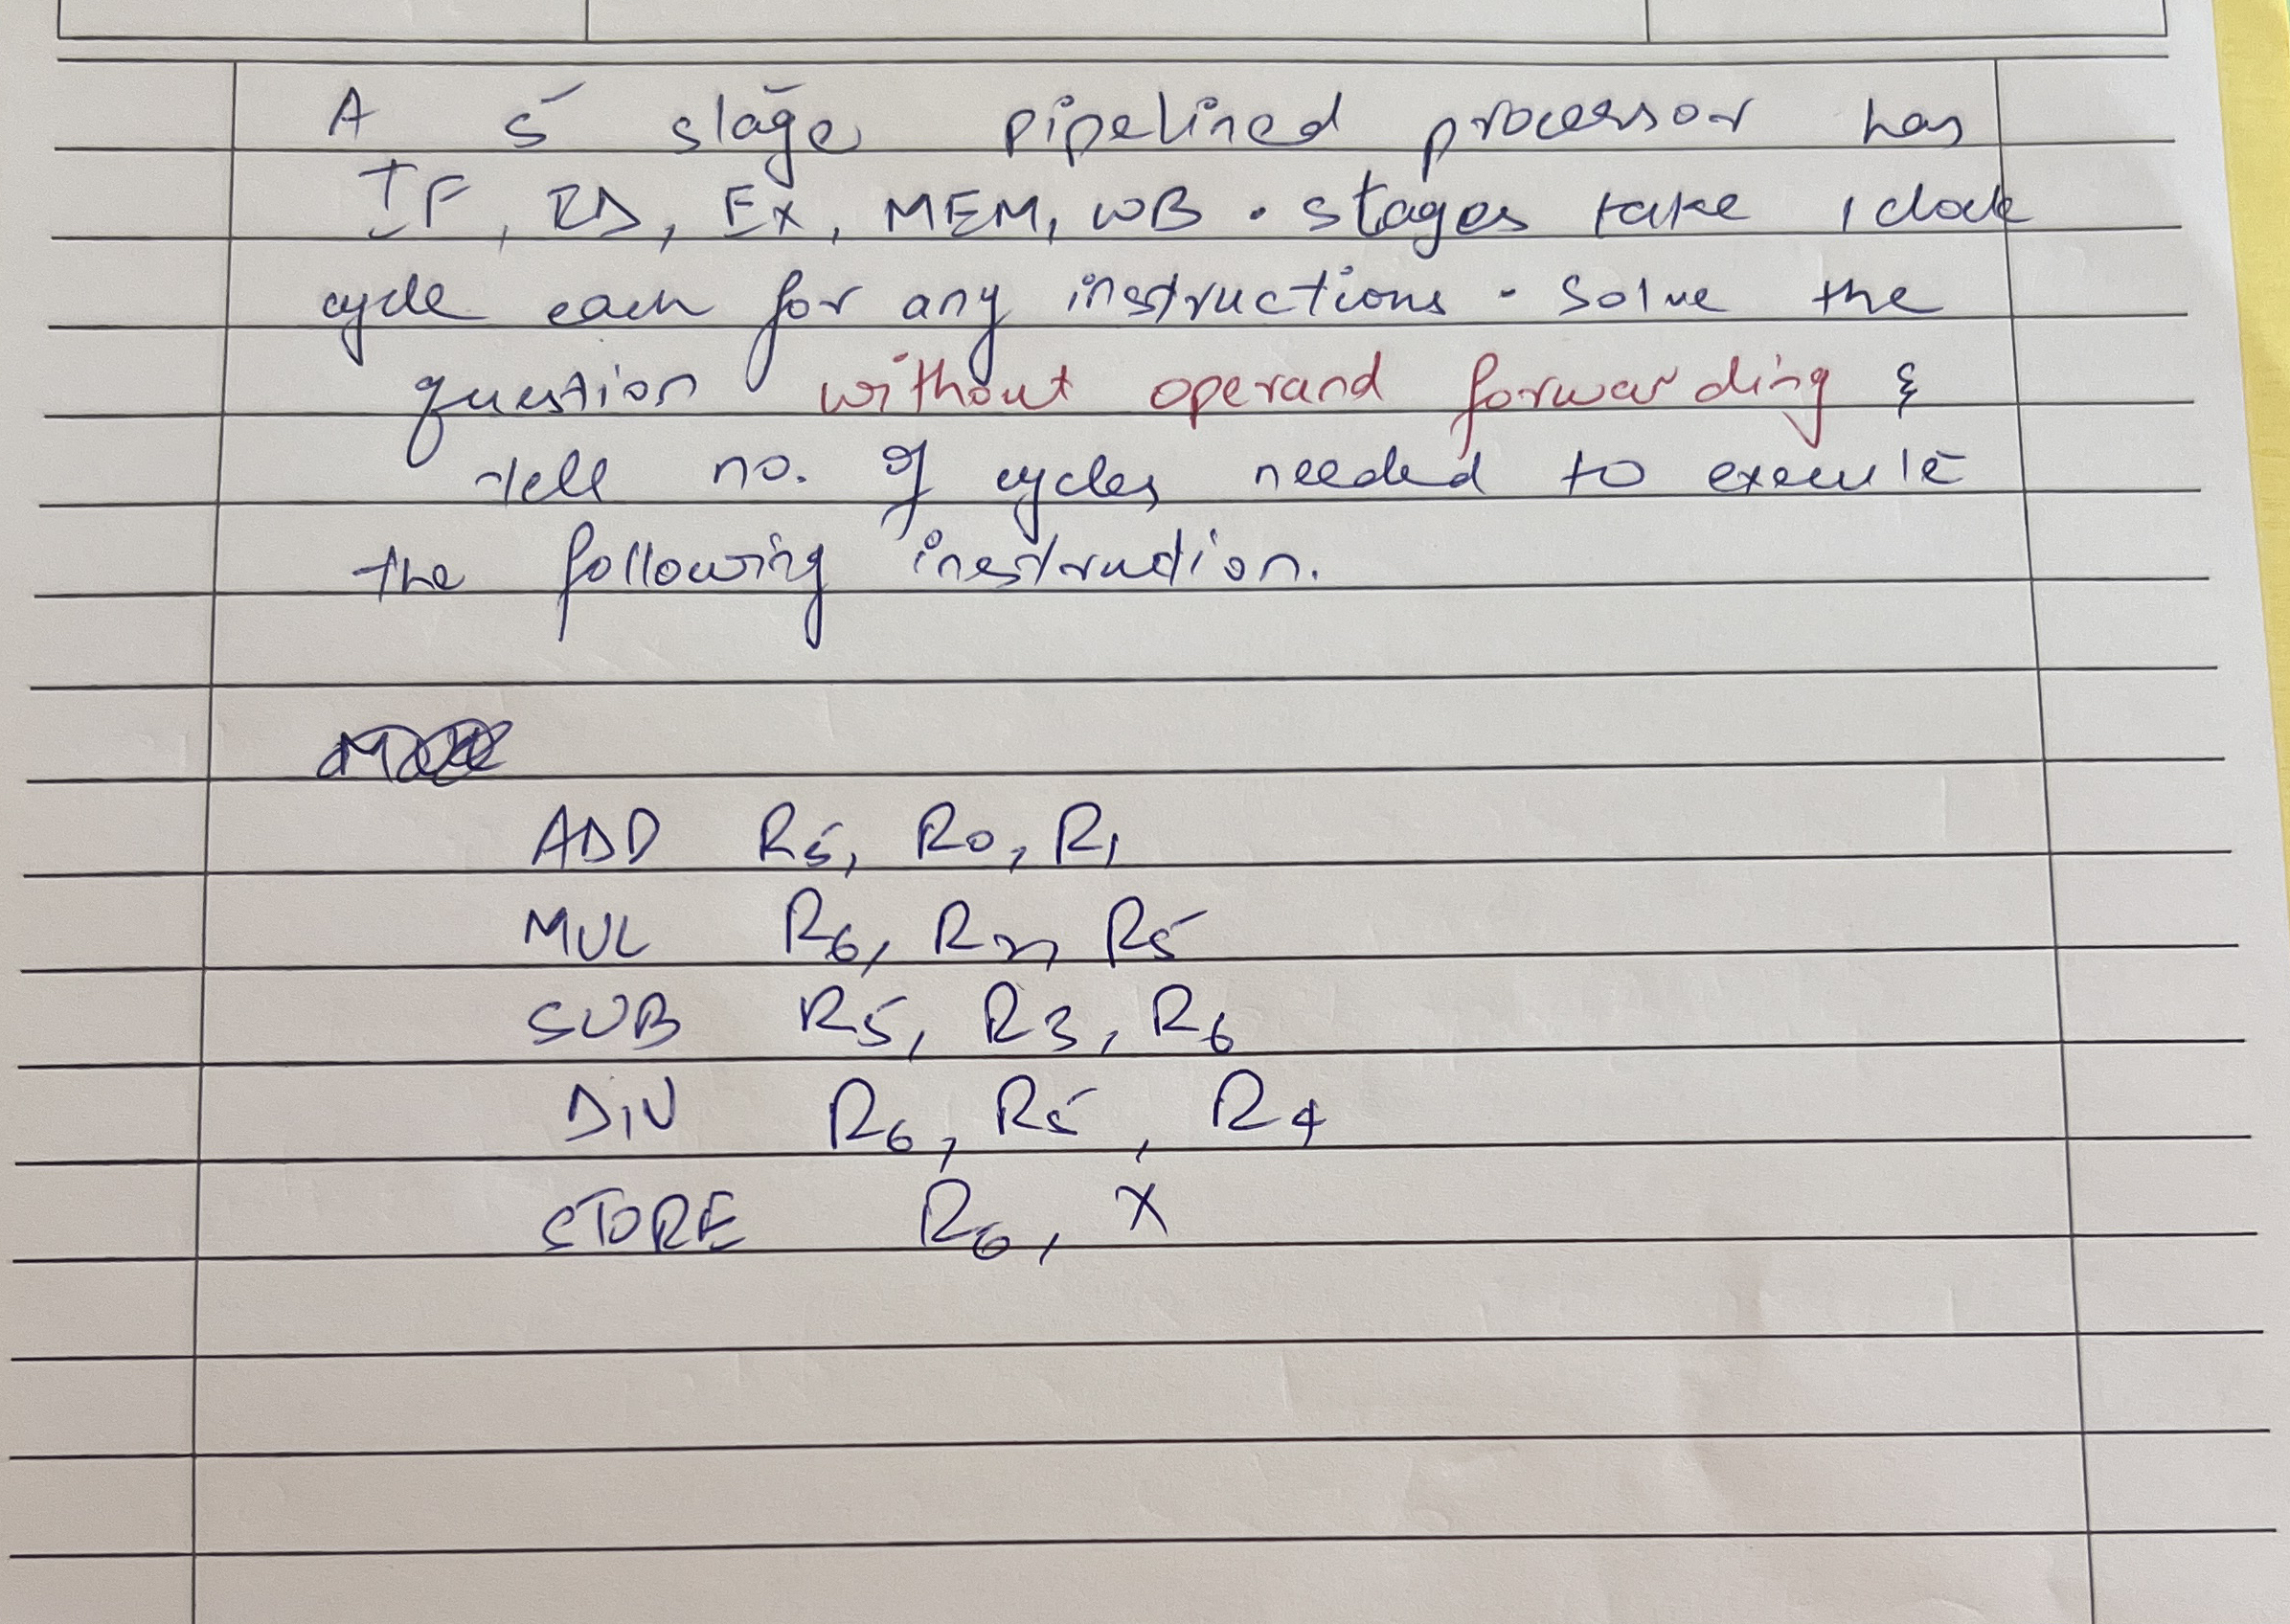 A 5 stage pipelined processor has
IF, ID, EX, MEM, WB . stages take 1 clock
cycle each for any instructions . Solve the
question without operand forwarding &
tell no. of cycles needed to execute
the following instruction.
ADD R5, R0, R1
MUL R6, R2, R5
SUB R5, R3, R6
DIV R6, R5, R4
STORE R6, X